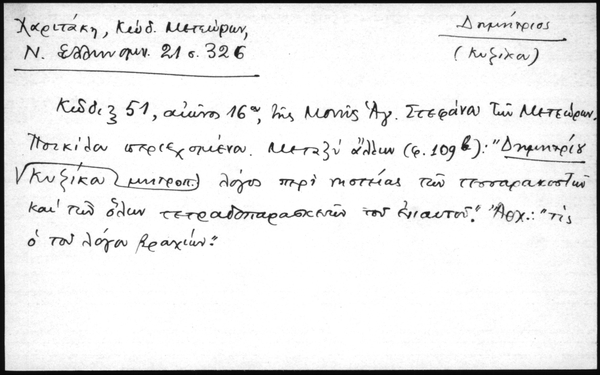 Χαριτάκη, Κώδ. Μετεώρων,
Ν. Ελληνομν. 21 σ. 326
Δημήτριος
(Κυζίκου)
Κώδιξ 51, αἰῶνος 16ου, τῆς Μονῆς Ἁγ. Στεφάνου τῶν Μετεώρων.
Ποικίλου περιεχομένου. Μεταξὺ ἄλλων (φ. 109b): "Δημητρίου
Κυζίκου μητροπ. λόγος περὶ νηστείας τῶν τεσσαρακοστῶν
καὶ τῶν ὅλων τετραδοπαρασκευῶν τοῦ ἐνιαυτοῦ." Ἀρχ.: "τίς
ὁ τοῦ λόγου βραχίων."